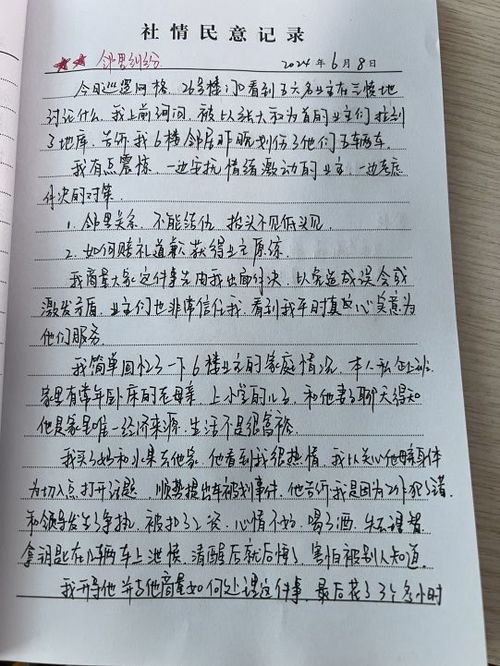 社情民意记录
★★ 邻里纠纷 2024年6月8日
今日巡逻网格，26号楼门口看到五六名业主在三楼地
讨论什么，我上前询问，被以张大和为首的业主们拉到
了地库，告诉我6楼邻居昨晚划伤了他们五辆车。
我有点震惊，一边安抚情绪激动的业主，一边考虑
解决的对策。
1. 邻里关系，不能结仇，抬头不见低头见。
2. 如何赔礼道歉获得业主原谅。
我商量大家这件事先由我出面解决，以免造成误会或
激发矛盾，业主们也非常信任我，看到我平时真心实意为
他们服务。
我简单回忆了一下6楼业主的家庭情况，本人私企上班，
家里有常年卧床的老母亲，上小学的儿子，和他妻子聊天得知
他是家里唯一经济来源，生活不是很富裕。
我买了奶和水果去他家，他看到我很热情，我以关心他母亲身体
为切入点打开话题，顺势提出车被划事件，他告诉我是因为工作犯了错，
和领导发生了争执，被扣了工资，心情不好，喝了酒，失去理智
拿钥匙在几辆车上泄愤，清醒后就后悔了，害怕被别人知道。
我开导他并与他商量如何处理这件事，最后花了3个多小时